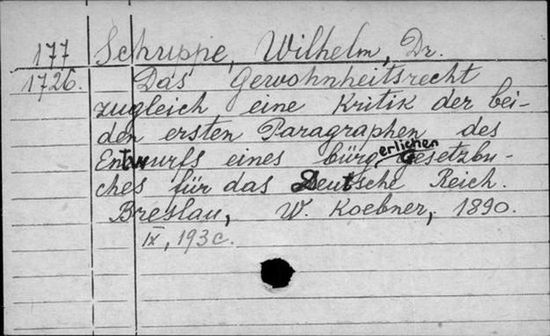 177 Schuppe, Wilhelm, Dr.
1726. Das Gewohnheitsrecht
zugleich eine Kritik der bei-
den ersten Paragraphen des
Entwurfs eines bürgerlichen Gesetzbu-
ches für das Deutsche Reich.
Breslau, W. Koebner, 1890.
IX, 193c.